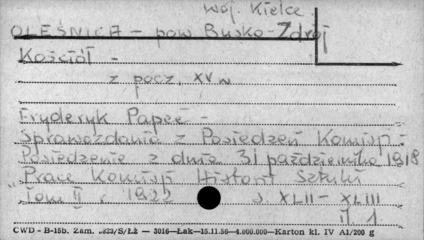 Woj. Kielce
OLEŚNICA - pow Busko-Zdrój
Kościół -
z pocz. XV w
Fryderyk Papeé -
Sprawozdania z Posiedzeń Komisji -
Posiedzenie z dnia 31 października 1918
"Prace Komisji Historii Sztuki
Tom II r 1922 s. XLII - XLIII
il. 1.
CWD - B-15b. Zam. /S/Łż — 3016—Łak—15.11.56—4.000.000—Karton kl. IV A1/200 g